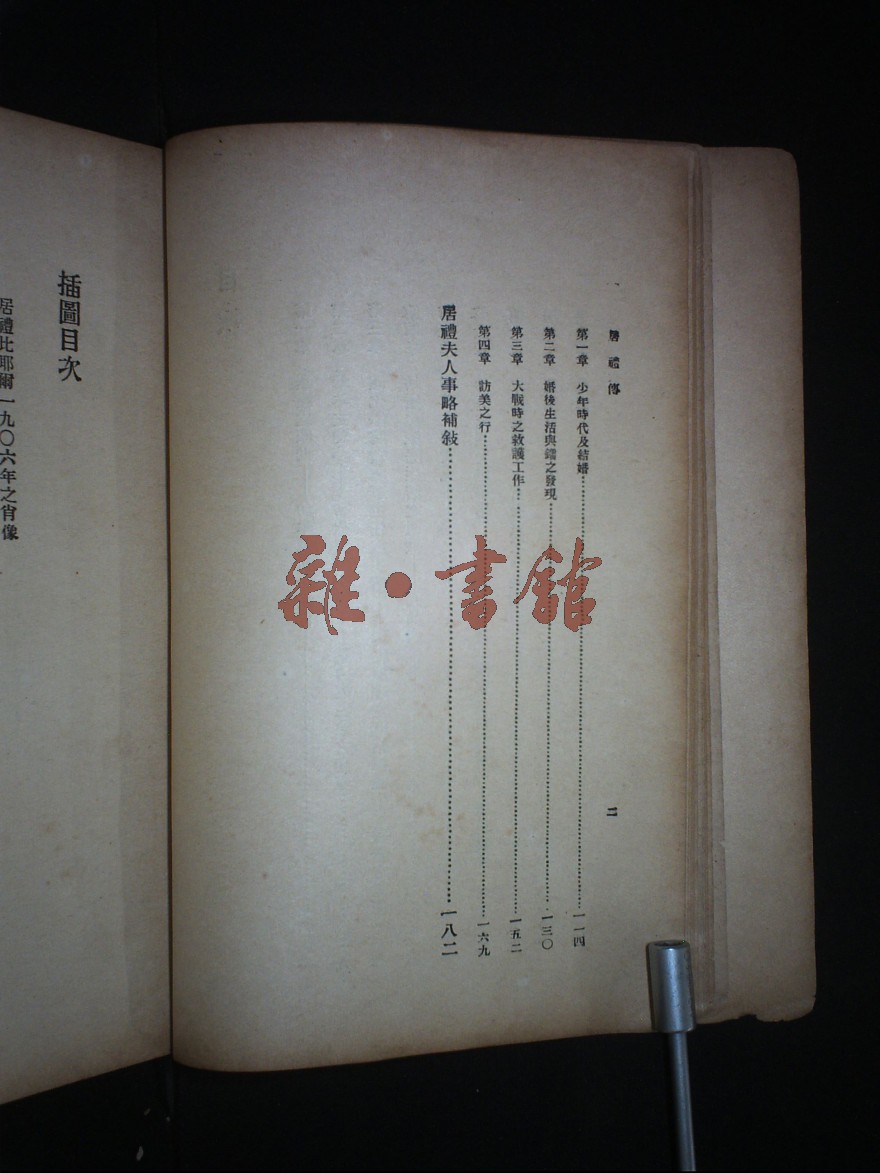 居禮傳
二
第一章　少年時代及結婚……一一四
第二章　婚後生活與鐳之發現……一三〇
第三章　大戰時之救護工作……一五二
第四章　訪美之行……一六九
居禮夫人事略補敍……一八二
插圖目次
居禮比耶爾一九〇六年之肖像
雜・書館